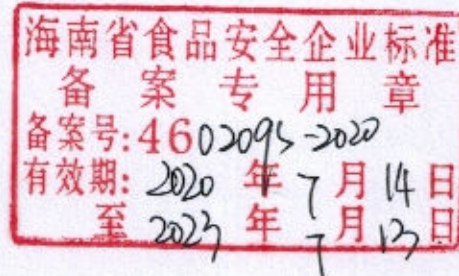 海南省食品安全企业标准
备案专用章
备案号:4602095-2020
有效期:2020年7月14日
至2023年7月13日